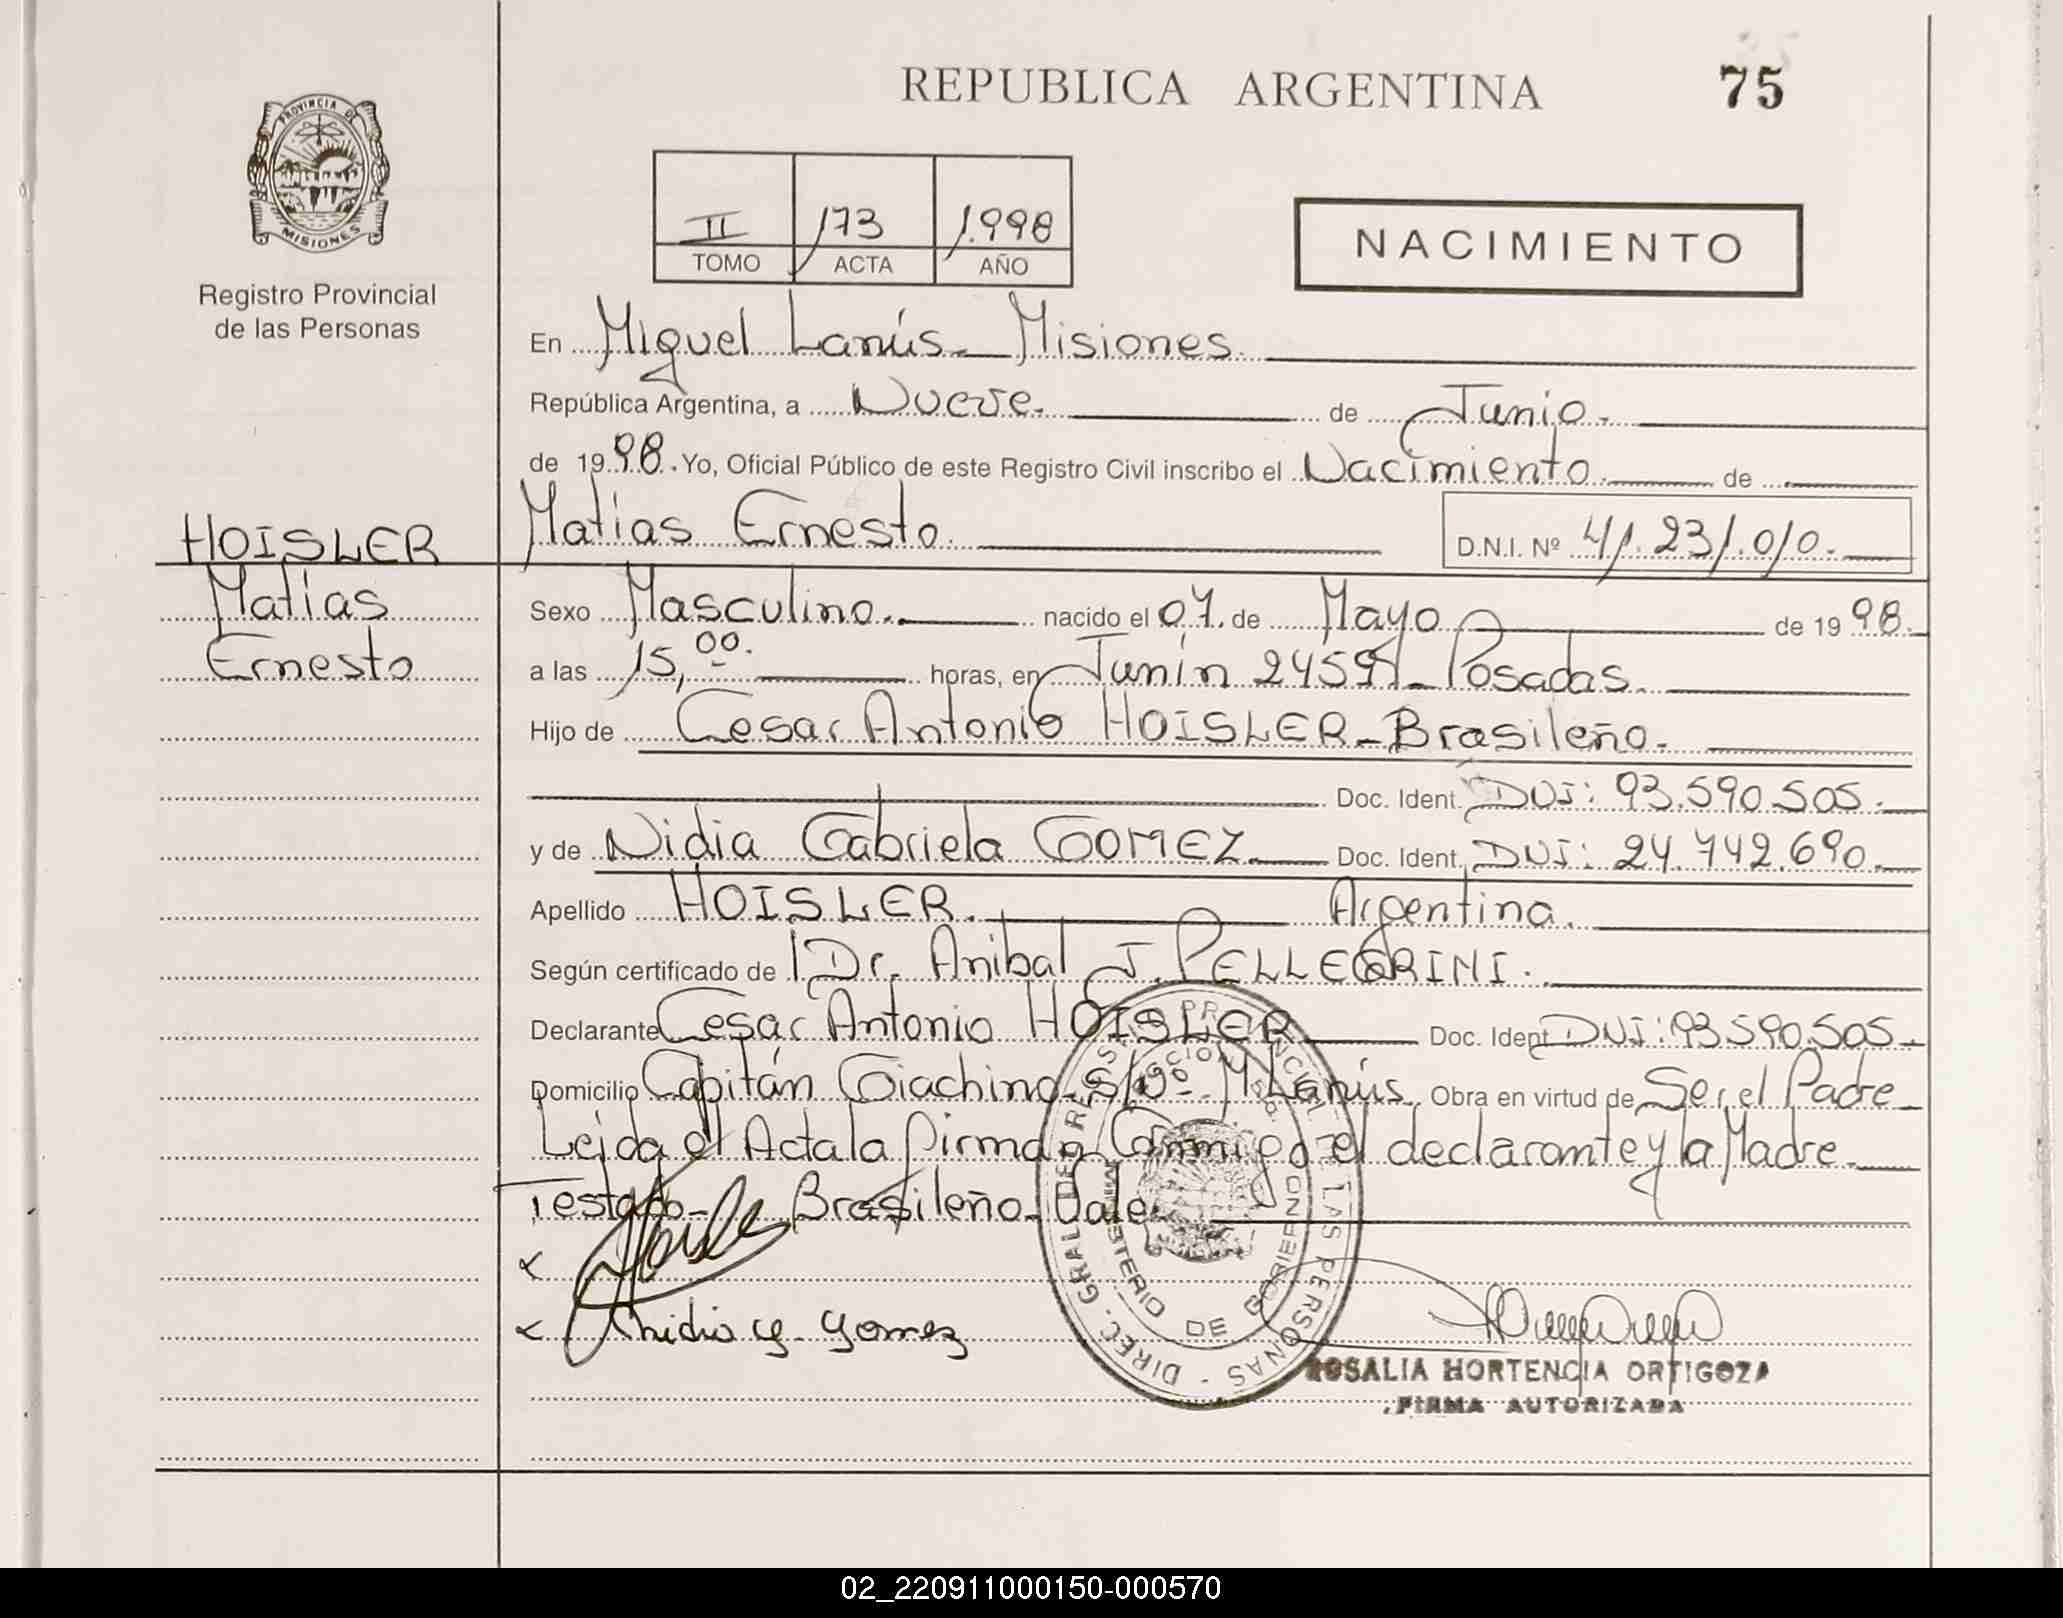 REPUBLICA ARGENTINA
75
PROVINCIA DE
MISIONES
Registro Provincial
de las Personas
II 173 1.998
TOMO ACTA AÑO
NACIMIENTO
En Miguel Lanús - Misiones
República Argentina, a Nueve. de Junio.
de 1998. Yo, Oficial Público de este Registro Civil inscribo el Nacimiento de
HOISLER
Matías
Ernesto
Matías Ernesto D.N.I. Nº 41.231.010.
Sexo Masculino. nacido el 07 de Mayo de 1998.
a las 15,00. horas, en Junín 2459 - Posadas.
Hijo de Cesar Antonio HOISLER - Brasileño.
Doc. Ident. DNI: 93.590.505.
y de Nidia Gabriela GOMEZ Doc. Ident. DNI: 24.742.690.
Apellido HOISLER. Argentina.
Según certificado de Dr. Anibal J. PELLEGRINI.
Declarante Cesar Antonio HOISLER Doc. Ident DNI: 93.590.505.
Domicilio Capitán Giachino S/Nº - M. Lanús. Obra en virtud de Ser el Padre
Leída el Acta la firman Conmigo el declarante y la Madre.
Testado - Brasileño - Vale
Nidia G. Gomez
DIREC. GRAL DE REGISTRO PROVINCIAL DE LAS PERSONAS
MINISTERIO DE GOBIERNO
ROSALIA HORTENCIA ORTIGOZA
FIRMA AUTORIZADA
02_220911000150-000570